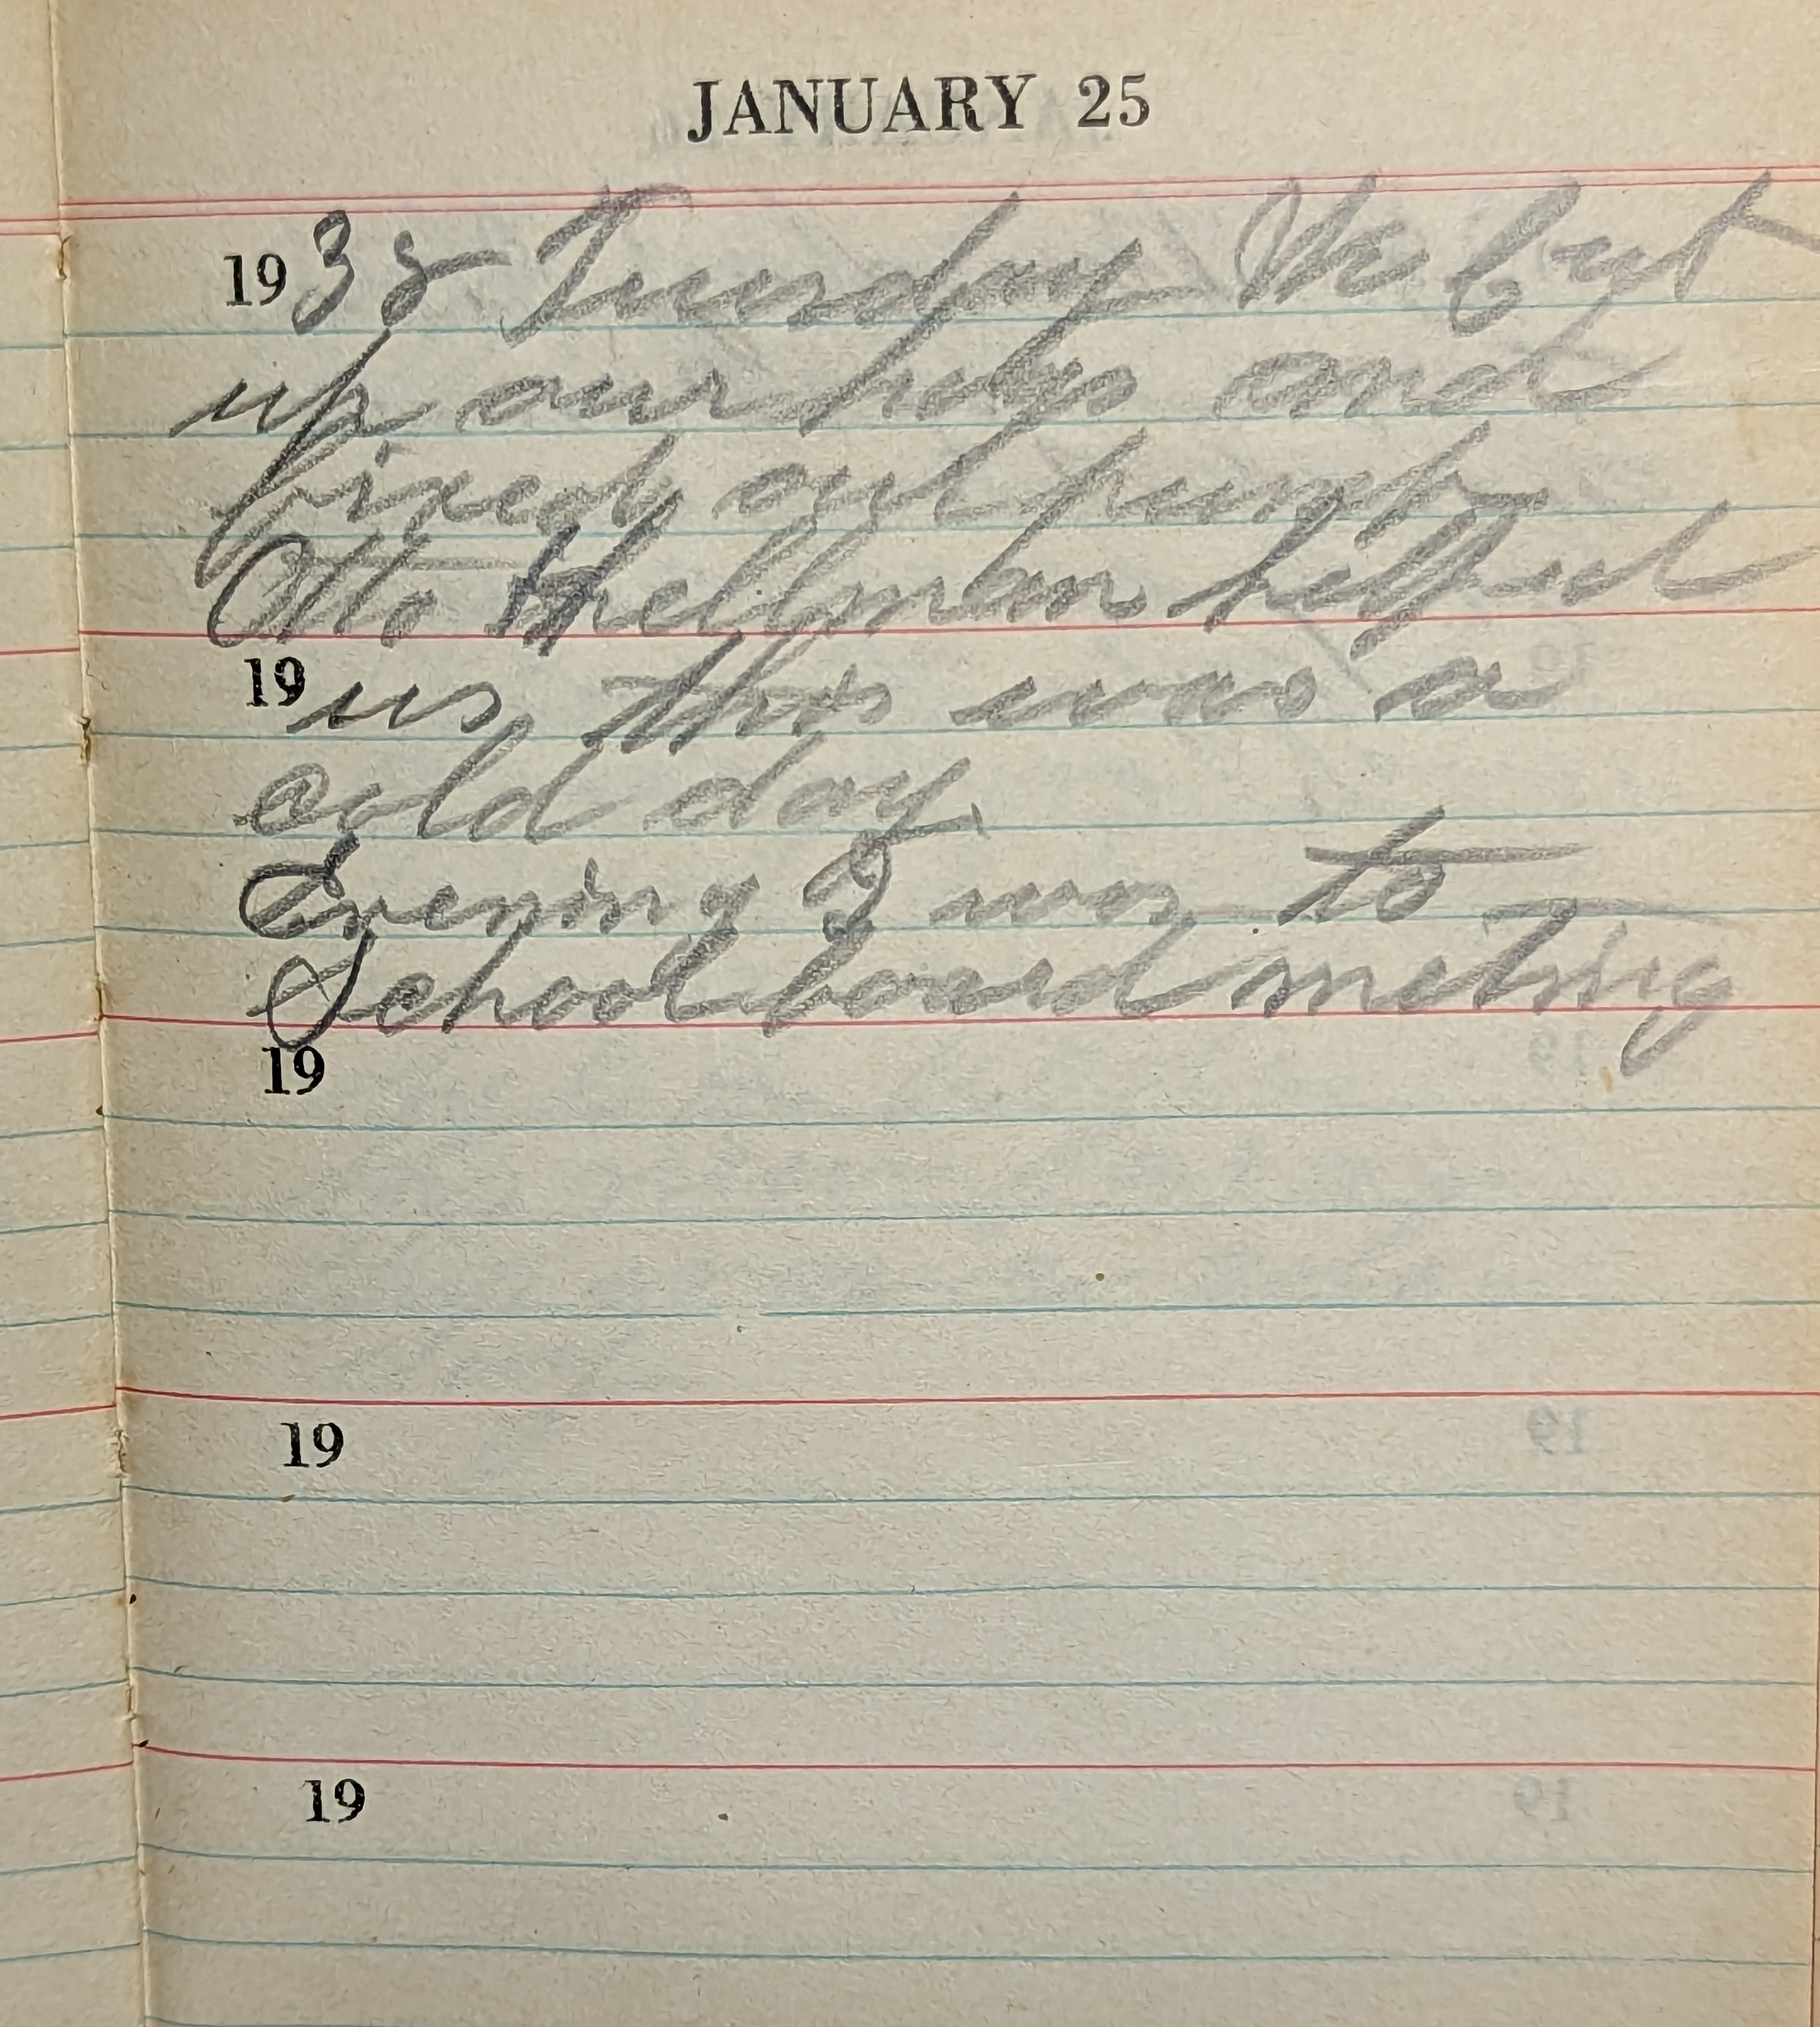 JANUARY 25
1938 Tuesday We Cut
up our hogs and
fixed pump
Otto Hellman helped
19 us this was a
cold day
Evening I was to
School board meting
19
19
19